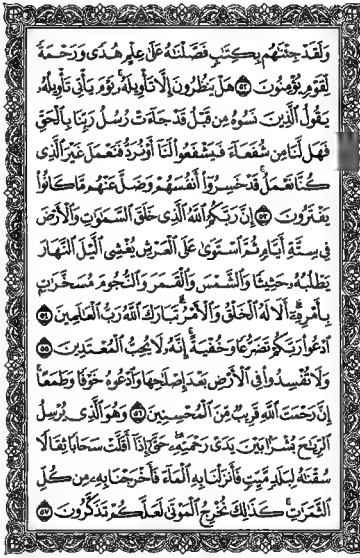 وَلَقَدْ جِئْنَٰهُم بِكِتَٰبٍ فَصَّلْنَٰهُ عَلَىٰ عِلْمٍ هُدًى وَرَحْمَةً
لِّقَوْمٍ يُؤْمِنُونَ ٥٢ هَلْ يَنظُرُونَ إِلَّا تَأْوِيلَهُۥ يَوْمَ يَأْتِى تَأْوِيلُهُۥ
يَقُولُ ٱلَّذِينَ نَسُوهُ مِن قَبْلُ قَدْ جَآءَتْ رُسُلُ رَبِّنَا بِٱلْحَقِّ
فَهَل لَّنَا مِن شُفَعَآءَ فَيَشْفَعُوا۟ لَنَآ أَوْ نُرَدُّ فَنَعْمَلَ غَيْرَ ٱلَّذِى
كُنَّا نَعْمَلُ ۚ قَدْ خَسِرُوٓا۟ أَنفُسَهُمْ وَضَلَّ عَنْهُم مَّا كَانُوا۟
يَفْتَرُونَ ٥٣ إِنَّ رَبَّكُمُ ٱللَّهُ ٱلَّذِى خَلَقَ ٱلسَّمَٰوَٰتِ وَٱلْأَرْضَ
فِى سِتَّةِ أَيَّامٍ ثُمَّ ٱسْتَوَىٰ عَلَى ٱلْعَرْشِ يُغْشِى ٱلَّيْلَ ٱلنَّهَارَ
يَطْلُبُهُۥ حَثِيثًا وَٱلشَّمْسَ وَٱلْقَمَرَ وَٱلنُّجُومَ مُسَخَّرَٰتٍ
بِأَمْرِهِۦٓ ۗ أَلَا لَهُ ٱلْخَلْقُ وَٱلْأَمْرُ ۗ تَبَارَكَ ٱللَّهُ رَبُّ ٱلْعَٰلَمِينَ ٥٤
ٱدْعُوا۟ رَبَّكُمْ تَضَرُّعًا وَخُفْيَةً ۚ إِنَّهُۥ لَا يُحِبُّ ٱلْمُعْتَدِينَ ٥٥
وَلَا تُفْسِدُوا۟ فِى ٱلْأَرْضِ بَعْدَ إِصْلَٰحِهَا وَٱدْعُوهُ خَوْفًا وَطَمَعًا ۚ
إِنَّ رَحْمَتَ ٱللَّهِ قَرِيبٌ مِّنَ ٱلْمُحْسِنِينَ ٥٦ وَهُوَ ٱلَّذِى يُرْسِلُ
ٱلرِّيَٰحَ بُشْرًۢا بَيْنَ يَدَىْ رَحْمَتِهِۦ ۖ حَتَّىٰٓ إِذَآ أَقَلَّتْ سَحَابًا ثِقَالًا
سُقْنَٰهُ لِبَلَدٍ مَّيِّتٍ فَأَنزَلْنَا بِهِ ٱلْمَآءَ فَأَخْرَجْنَا بِهِۦ مِن كُلِّ
ٱلثَّمَرَٰتِ ۚ كَذَٰلِكَ نُخْرِجُ ٱلْمَوْتَىٰ لَعَلَّكُمْ تَذَكَّرُونَ ٥٧